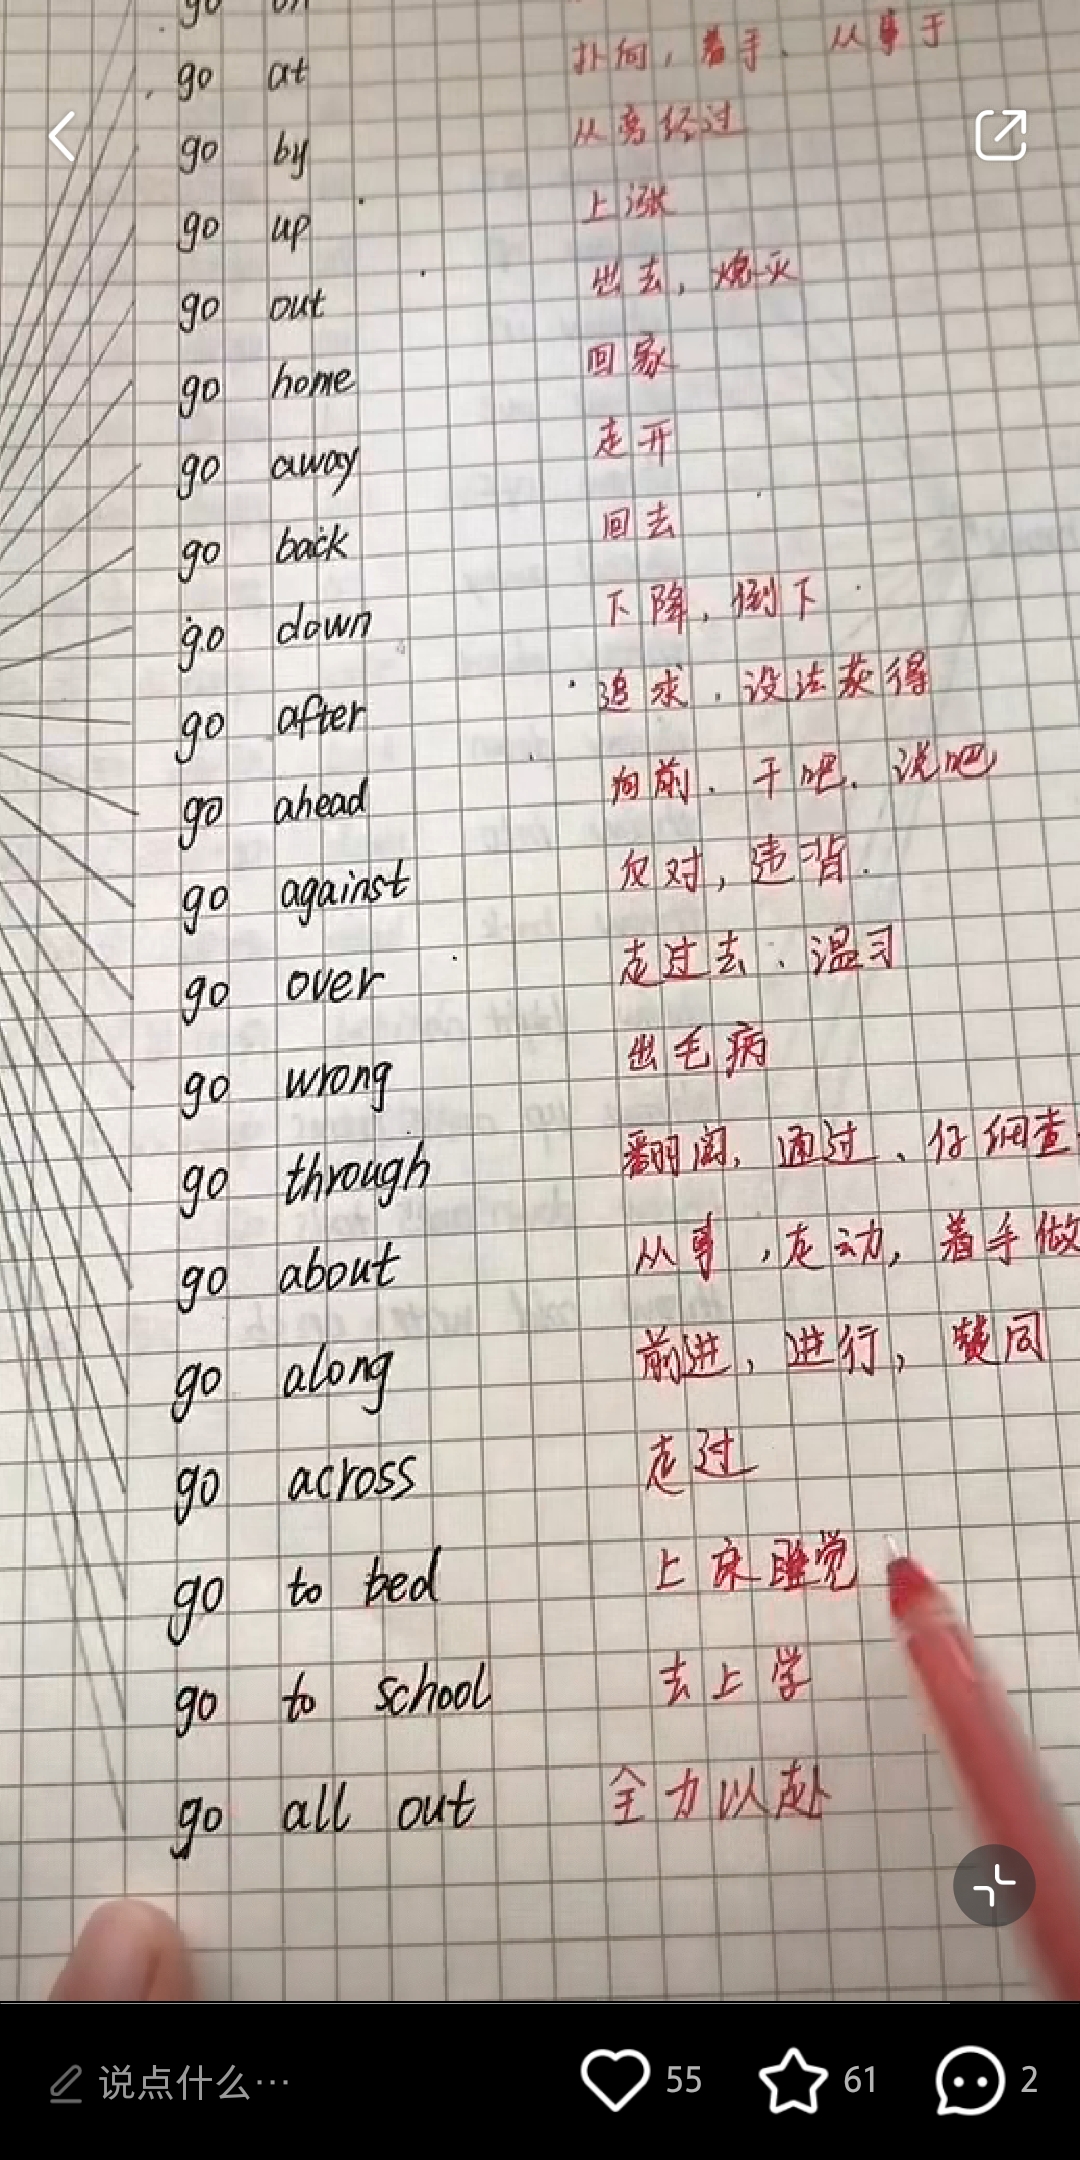 go on
go at 扑向，着手、从事于
go by 从旁经过
go up 上涨
go out 出去，熄灭
go home 回家
go away 走开
go back 回去
go down 下降，倒下
go after 追求，设法获得
go ahead 向前．干吧．说吧
go against 反对，违背．
go over 走过去．温习
go wrong 出毛病
go through 翻阅，通过、仔细查
go about 从事，走动，着手做
go along 前进，进行，赞同
go across 走过
go to bed 上床睡觉
go to school 去上学
go all out 全力以赴
说点什么… 55 61 2